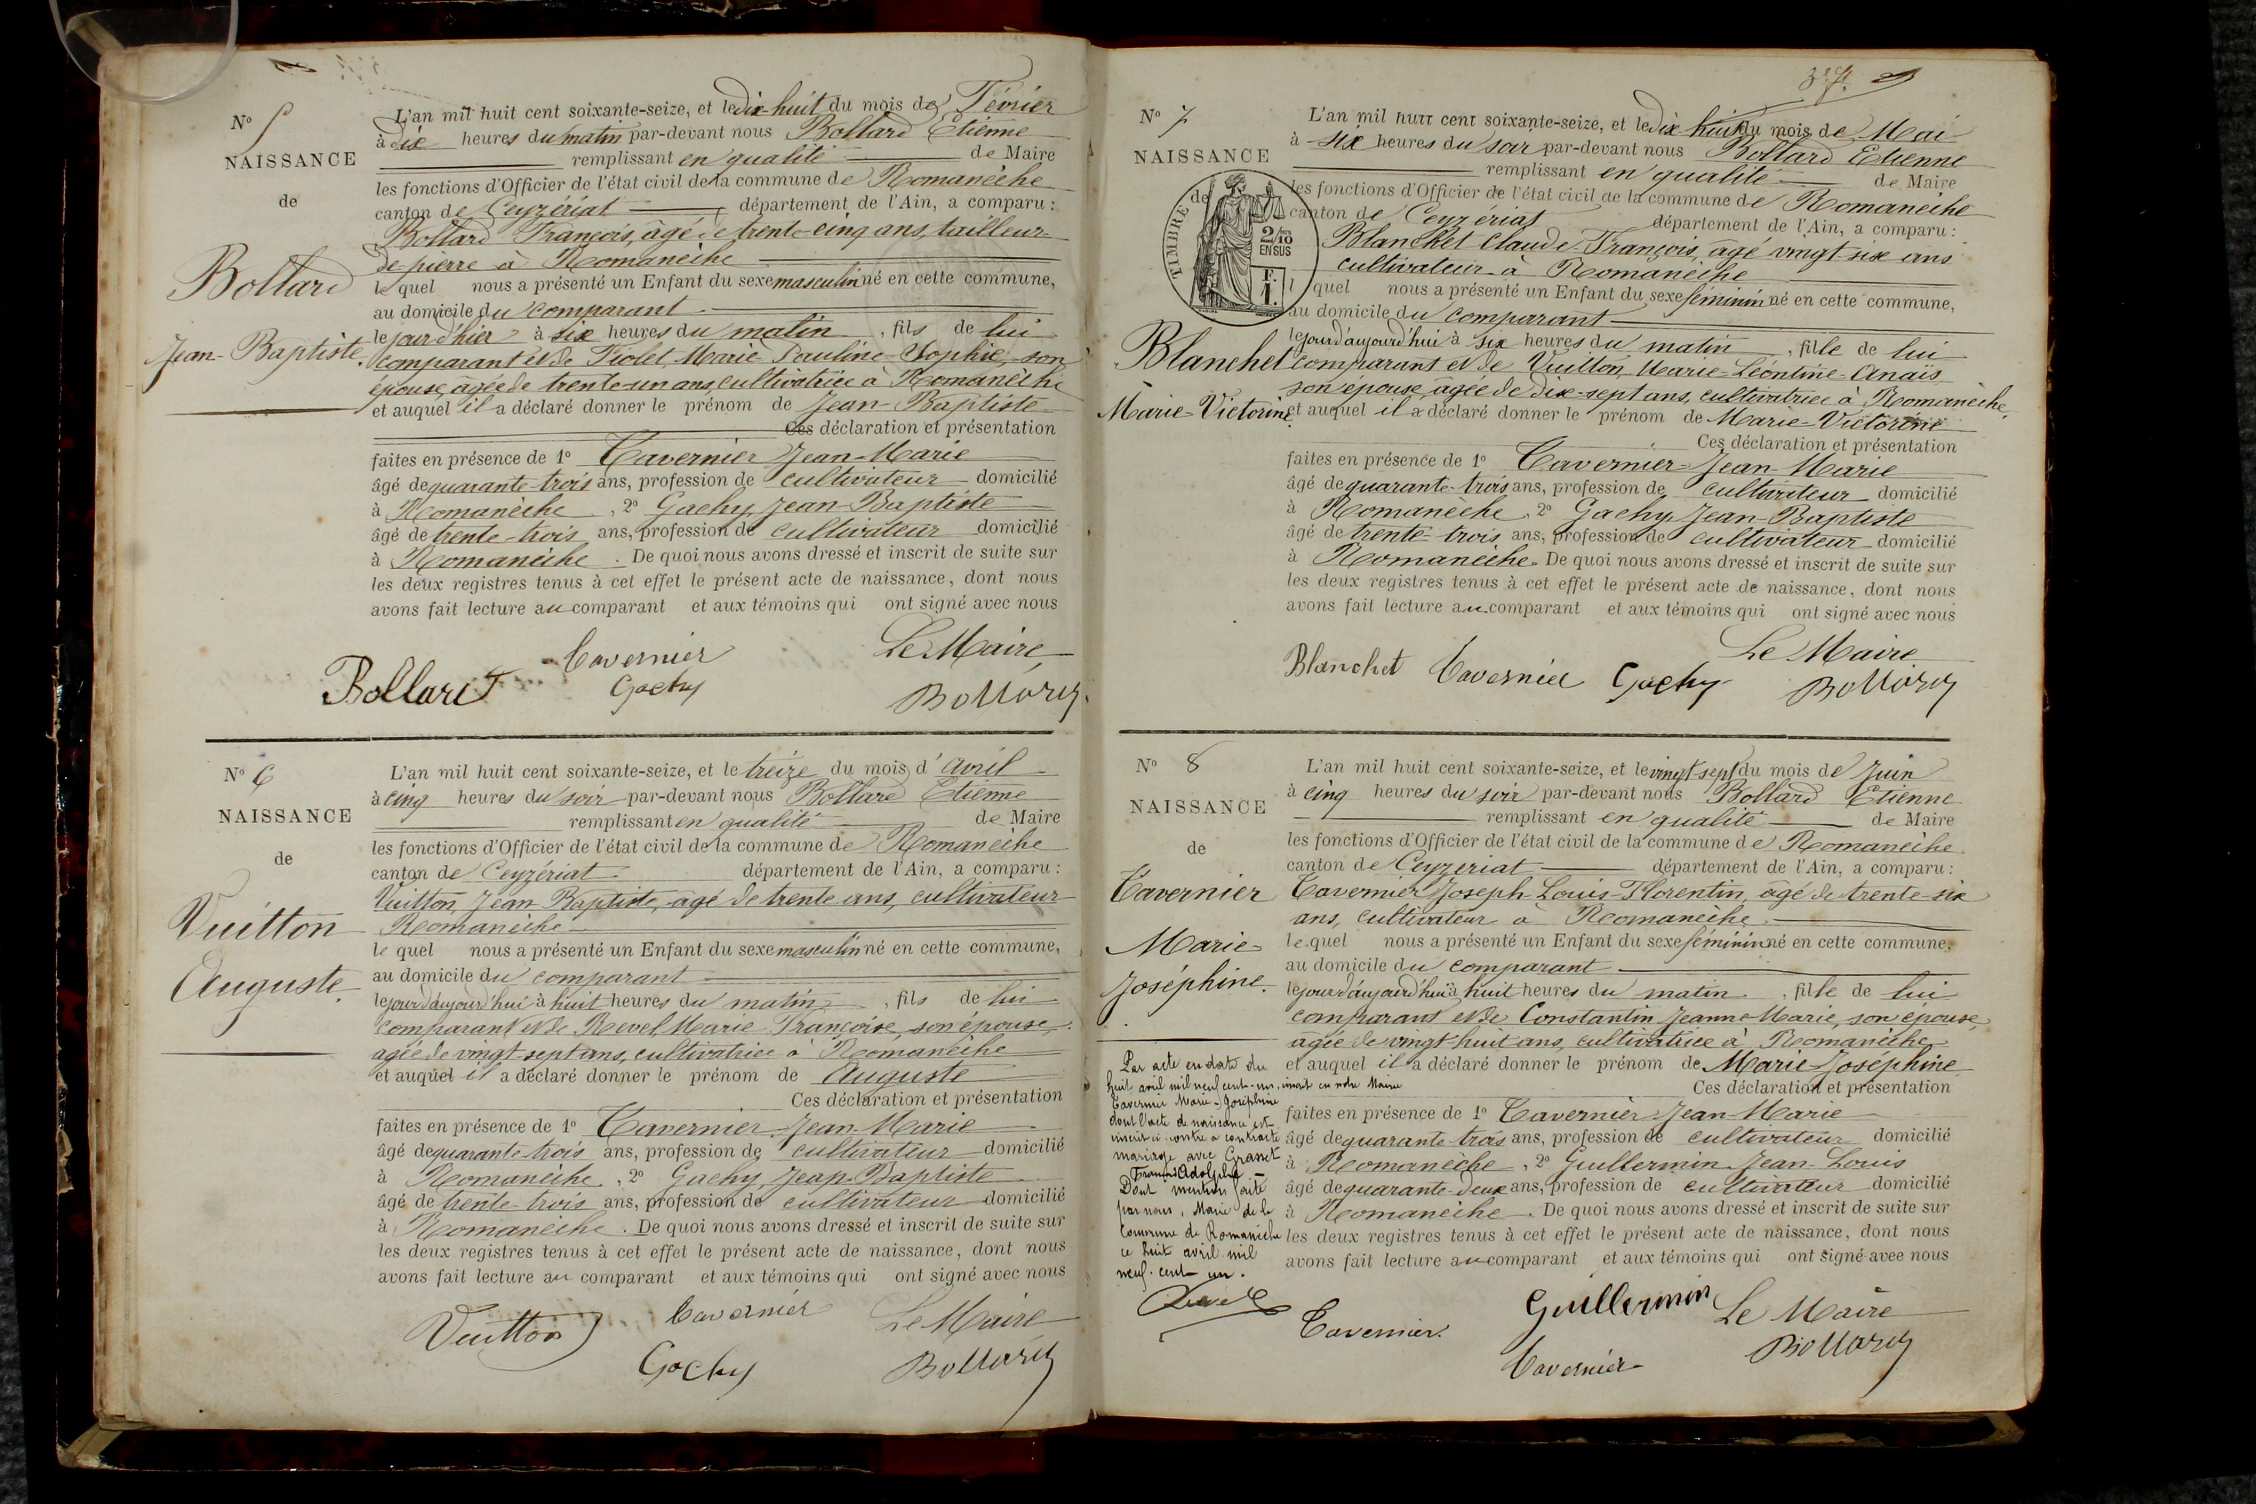 N° 5
NAISSANCE
de
Bollard
Jean-Baptiste.
L'an mil huit cent soixante-seize, et le dix-huit du mois de Février
à dix heures du matin par-devant nous Bollard Etienne
remplissant en qualité de Maire
les fonctions d'Officier de l'état civil de la commune de Romanèche
canton de Ceyzériat département de l'Ain, a comparu :
Bollard François, âgé de trente-cinq ans, tailleur
de pierre à Romanèche
le quel nous a présenté un Enfant du sexe masculin né en cette commune,
au domicile du comparant
le jour d'hier à six heures du matin, fils de lui
comparant et de Fiolet Marie-Pauline-Sophie, son
épouse, âgée de trente-un ans, cultivatrice à Romanèche
et auquel il a déclaré donner le prénom de Jean-Baptiste
Ces déclaration et présentation
faites en présence de 1° Tavernier Jean-Marie
âgé de quarante-trois ans, profession de cultivateur domicilié
à Romanèche, 2° Gachy Jean-Baptiste
âgé de trente-trois ans, profession de cultivateur domicilié
à Romanèche. De quoi nous avons dressé et inscrit de suite sur
les deux registres tenus à cet effet le présent acte de naissance, dont nous
avons fait lecture au comparant et aux témoins qui ont signé avec nous
Tavernier Le Maire,
Bollard Gachy Bollard
N° 6
NAISSANCE
de
Vuitton
Auguste.
L'an mil huit cent soixante-seize, et le treize du mois d'avril
à cinq heures du soir par-devant nous Bollard Etienne
remplissant en qualité de Maire
les fonctions d'Officier de l'état civil de la commune de Romanèche
canton de Ceyzériat département de l'Ain, a comparu :
Vuitton, Jean-Baptiste, âgé de trente ans, cultivateur
Romanèche
le quel nous a présenté un Enfant du sexe masculin né en cette commune,
au domicile du comparant
le jour d'aujourd'hui à huit heures du matin, fils de lui
comparant et de Revel Marie Françoise, son épouse,
agée de vingt-sept ans, cultivatrice à Romanèche
et auquel il a déclaré donner le prénom de Auguste
Ces déclaration et présentation
faites en présence de 1° Tavernier Jean-Marie
âgé de quarante-trois ans, profession de cultivateur domicilié
à Romanèche, 2° Gachy, Jean-Baptiste
âgé de trente-trois ans, profession de cultivateur domicilié
à Romanèche. De quoi nous avons dressé et inscrit de suite sur
les deux registres tenus à cet effet le présent acte de naissance, dont nous
avons fait lecture au comparant et aux témoins qui ont signé avec nous
Vuitton Tavernier Le Maire
Gachy Bollard
N° 7
NAISSANCE
de
TIMBRE
2/10
EN SUS
F.
1.
Blanchet
Marie-Victorine.
L'an mil huit cent soixante-seize, et le dix huit du mois de Mai
à six heures du soir par-devant nous Bollard Etienne
remplissant en qualité de Maire
les fonctions d'Officier de l'état cicil de la commune de Romanèche
canton de Ceyzériat département de l'Ain, a comparu :
Blanchet Claude-François, âgé vingt-six ans
cultivateur à Romanèche
l quel nous a présenté un Enfant du sexe féminin né en cette commune,
au domicile du comparant
le jour d'aujourd'hui à six heures du matin, fille de lui
comparant et de Vuitton, Marie-Léontine-Anaïs
son épouse, âgée de dix-sept ans, cultivatrice à Romanèche.
et auquel il a déclaré donner le prénom de Marie-Victorine
Ces déclaration et présentation
faites en présence de 1° Tavernier Jean-Marie
âgé de quarante-trois ans, profession de cultivateur domicilié
à Romanèche, 2° Gachy Jean-Baptiste
âgé de trente-trois ans, profession de cultivateur domicilié
à Romanèche. De quoi nous avons dressé et inscrit de suite sur
les deux registres tenus à cet effet le présent acte de naissance, dont nous
avons fait lecture au comparant et aux témoins qui ont signé avec nous
Le Maire
Blanchet Tavernier Gachy Bollard
N° 8
NAISSANCE
de
Tavernier
Marie-
Joséphine.
Par acte en date du
huit avril mil neuf cent-un, inscrit en notre Mairie
Tavernier Marie-Joséphine
dont l'acte de naissance est
inscrit ci-contre a contracté
mariage avec Grasset
Francis Adolphe
Dont mention faite
par nous, Maire de la
Commune de Romanèche
ce huit avril mil
neuf-cent un.
L'an mil huit cent soixante-seize, et le vingt-sept du mois de Juin
à cinq heures du soir par-devant nous Bollard Etienne
remplissant en qualité de Maire
les fonctions d'Officier de l'état civil de la commune de Romanèche
canton de Ceyzeriat département de l'Ain, a comparu :
Tavernier Joseph-Louis-Florentin, âgé de trente-six
ans, cultivateur à Romanèche
le quel nous a présenté un Enfant du sexe féminin né en cette commune,
au domicile du comparant
le jour d'aujourd'hui à huit heures du matin, fille de lui
comparant et de Constantin Jeanne-Marie, son épouse,
âgée de vingt-huit ans, cultivatrice à Romanèche
et auquel il a déclaré donner le prénom de Marie-Joséphine
Ces déclaration et présentation
faites en présence de 1° Tavernier Jean-Marie
âgé de quarante-trois ans, profession de cultivateur domicilié
à Romanèche, 2° Guillermin Jean-Louis
âgé de quarante-deux ans, profession de cultivateur domicilié
à Romanèche. De quoi nous avons dressé et inscrit de suite sur
les deux registres tenus à cet effet le présent acte de naissance, dont nous
avons fait lecture au comparant et aux témoins qui ont signé avec nous
Guillermin Le Maire
Tavernier. Bollard
Tavernier